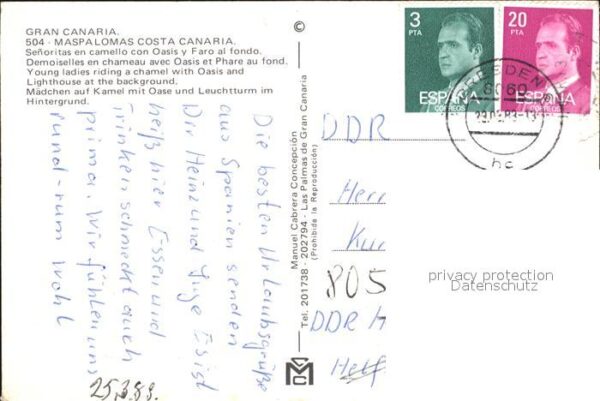 GRAN CANARIA.
504 - MASPALOMAS COSTA CANARIA.
Señoritas en camello con Oasis y Faro al fondo.
Demoiselles en chameau avec Oasis et Phare au fond.
Young ladies riding a chamel with Oasis and
Lighthouse at the background.
Mädchen auf Kamel mit Oase und Leuchtturm im
Hintergrund.
©
Die besten Urlaubsgrüße
aus Spanien senden
Dir Heinz und Inge Es ist
heiß hier Essen und
Trinken schmeckt auch
prima. Wir fühlen uns
rund-rum wohl
25.3.83.
Manuel Cabrera Concepción
Tel. 201738 - 202794 - Las Palmas de Gran Canaria
(Prohibida la Reproducción)
3
PTA
ESPAÑA
CORREOS
20
PTA
ESPAÑA
CORREOS
8060
hc
DDR
Herr
Kur
805
DDR
privacy protection
Datenschutz